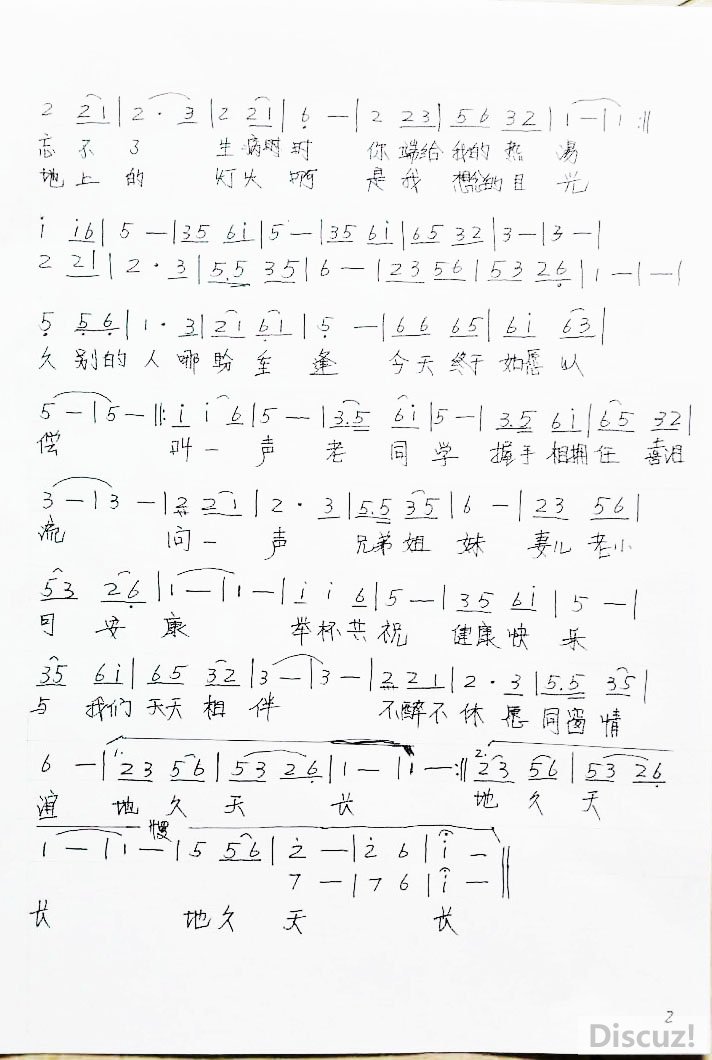 2 2 1 | 2 · 3 | 2 2 1 | 6 — | 2 2 3 | 5 6 3 2 | 1 — | 1 :||
忘 不 了 生 病时 时 你 端给 我的 热 汤
地 上 的 灯 火 啊 是 我 想念的 目 光
i i 6 | 5 — | 3 5 6 i | 5 — | 3 5 6 i | 6 5 3 2 | 3 — | 3 — |
2 2 1 | 2 · 3 | 5. 5 3 5 | 6 — | 2 3 5 6 | 5 3 2 6 | 1 — | — |
5 5 6 | 1 · 3 | 2 1 6 1 | 5 — | 6 6 6 5 | 6 i 6 3 |
久 别的 人 哪 盼 重 逢 今天 终于 如愿 以
5 — | 5 — ||: i i 6 | 5 — | 3. 5 6 i | 5 — | 3. 5 6 i | 6 5 3 2 |
偿 叫 一 声 老 同 学 握手 相拥 住 喜泪
3 — | 3 — | 2 2 1 | 2 · 3 | 5. 5 3 5 | 6 — | 2 3 5 6 |
流 问 一 声 兄弟 姐 妹 妻儿 老小
5 3 2 6 | 1 — | 1 — | i i 6 | 5 — | 3 5 6 i | 5 — |
可 安 康 举杯共 祝 健康 快 乐
3 5 6 i | 6 5 3 2 | 3 — | 3 — | 2 2 2 1 | 2 · 3 | 5. 5 3 5 |
与 我们 天天 相 伴 不醉不 休 愿 同窗 情
6 — | 1. 2 3 5 6 | 5 3 2 6 | 1 — | 1 — :|| 2. 2 3 5 6 | 5 3 2 6
谊 地 久 天 长 地 久 天
慢
1 — | 1 — | 5 5 6 | 2̇ — | 2̇ 6 | i — ||
7 — | 7 6 | i — ||
长 地久 天 长
2
Discuz!